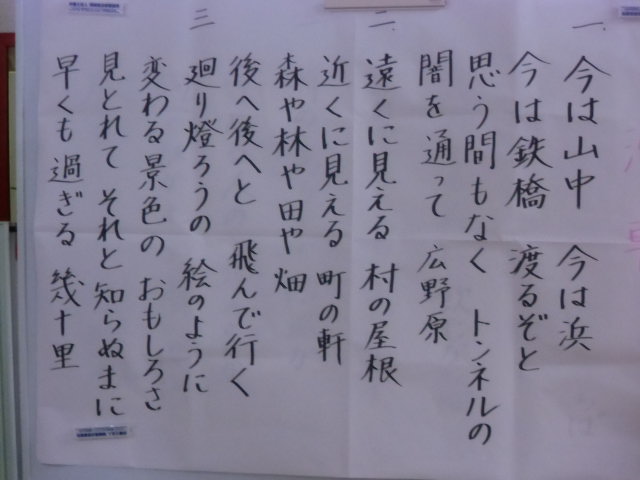 一、今は山中 今は浜
今は鉄橋 渡るぞと
思う間もなく トンネルの
闇を通って 広野原
二、遠くに見える 村の屋根
近くに見える 町の軒
森や林や田や畑
後へ後へと 飛んで行く
三 廻り燈ろうの 絵のように
変わる景色の おもしろさ
見とれて それと知らぬまに
早くも過ぎる 幾十里